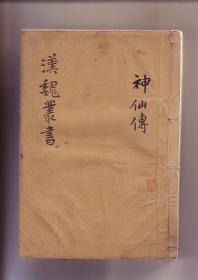 漢魏叢書
神仙傳